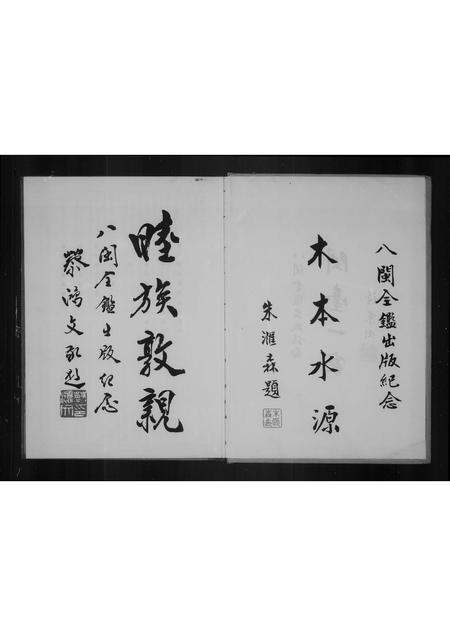 八閩全鑑出版紀念
木本水源
朱滙森題
睦族敦親
八閩全鑑出版紀念
黎鴻文敬題